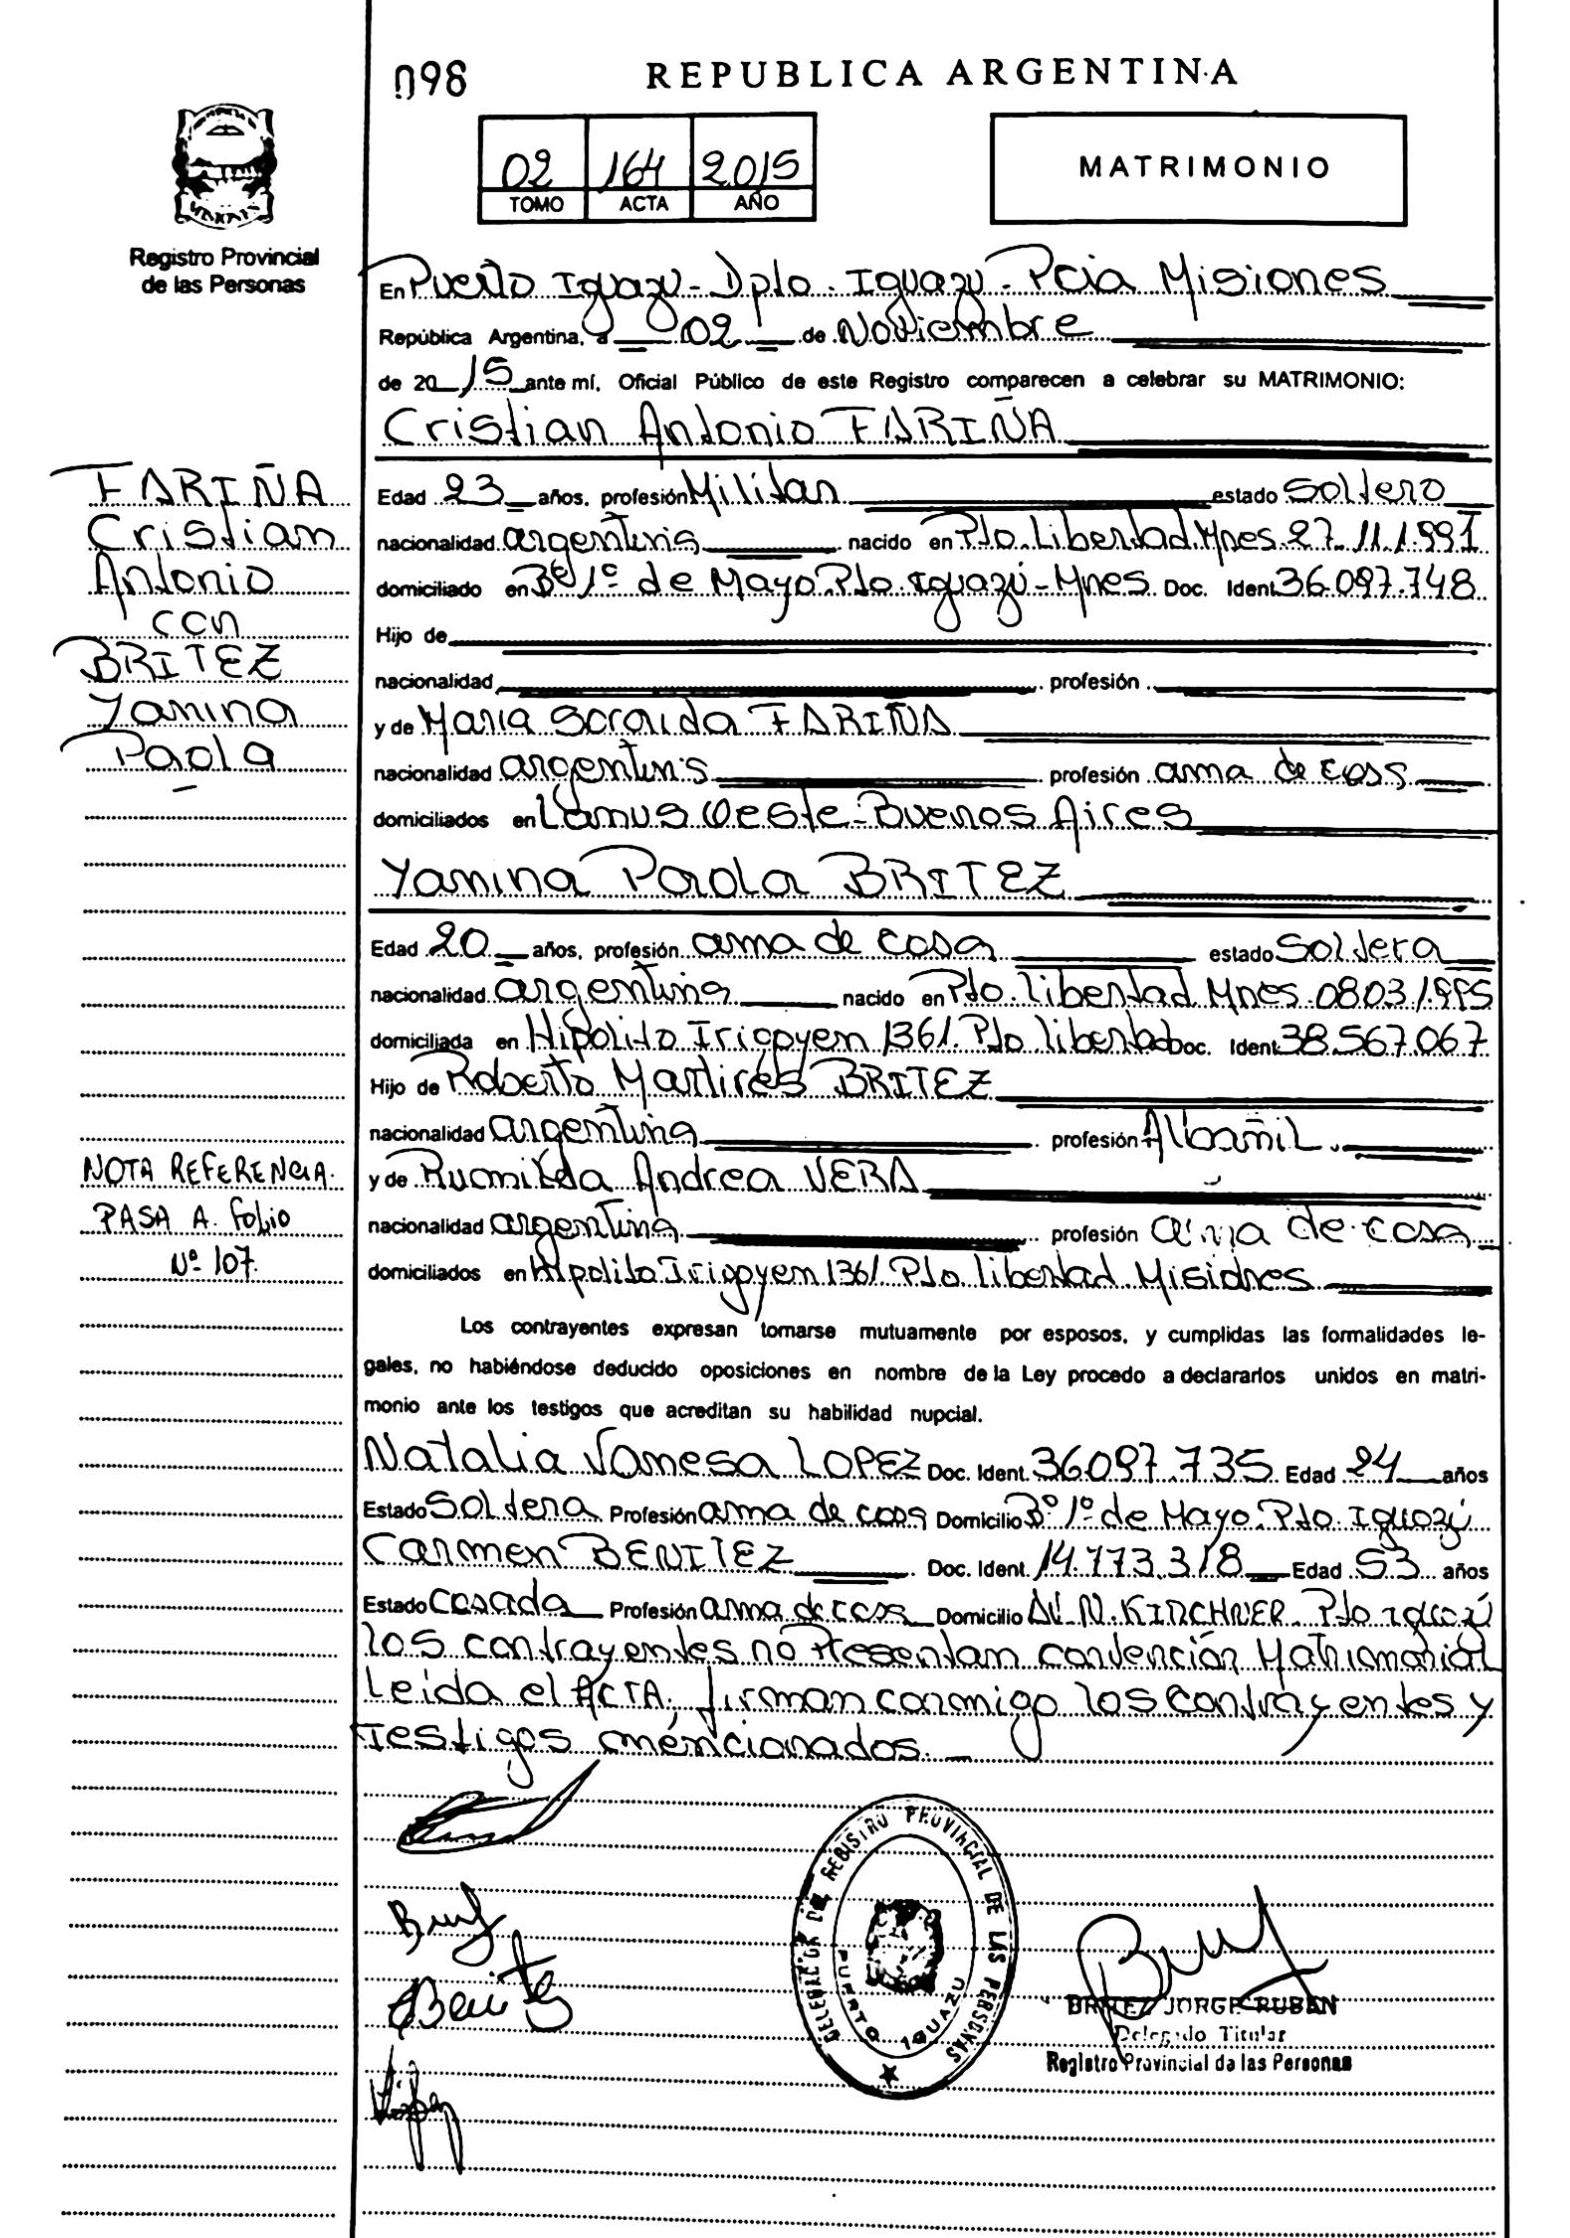 098
REPUBLICA ARGENTINA
02 164 2015
TOMO ACTA AÑO
MATRIMONIO
Registro Provincial
de las Personas
En Puerto Iguazu - Dpto. Iguazu - Pcia Misiones
República Argentina, a 02 de Noviembre
de 2015 ante mí, Oficial Público de este Registro comparecen a celebrar su MATRIMONIO:
Cristian Antonio FARIÑA
FARIÑA
Cristian
Antonio
con
BRITEZ
Yamina
Paola
Edad 23 años, profesión Militar estado Soltero
nacionalidad argentina nacido en Pto. Libertad Mnes 27.11.1991
domiciliado en Bº 1º de Mayo. Pto. Iguazú - Mnes. Doc. Ident. 36.097.748
Hijo de
nacionalidad profesión
y de Maria Soraida FARIÑA
nacionalidad argentina profesión ama de casa
domiciliados en Lanus Oeste - Buenos Aires
Yamina Paola BRITEZ
Edad 20 años, profesión ama de casa estado Soltera
nacionalidad argentina nacido en Pto. Libertad Mnes 08.03.1995
domiciliada en Hipolito Irigoyem 1361. Pto libertad Doc. Ident. 38.567.067
Hijo de Roberto Martires BRITEZ
nacionalidad argentina profesión Albañil.
y de Rumilda Andrea VERA
nacionalidad argentina profesión ama de casa
domiciliados en Hipolito Irigoyem 1361 Pto. libertad Misiones
NOTA REFERENCIA.
PASA A. folio
Nº 107.
Los contrayentes expresan tomarse mutuamente por esposos, y cumplidas las formalidades le-
gales, no habiéndose deducido oposiciones en nombre de la Ley procedo a declararlos unidos en matri-
monio ante los testigos que acreditan su habilidad nupcial.
Natalia Vanesa LOPEZ Doc. Ident. 36.097.735 Edad 24 años
Estado Soltera Profesión ama de casa Domicilio Bº 1º de Mayo. Pto. Iguazú
Carmen BENITEZ Doc. Ident. 14.773.318 Edad 53 años
Estado Casada Profesión ama de casa Domicilio AV. N. KIRCHNER. Pto Iguazú
los contrayentes no Presentam convención Matrimonial
Leida el ACTA, firman conmigo los contrayentes y
Testigos mencionados.
DELEGACION DEL REGISTRO PROVINCIAL DE LAS PERSONAS
PUERTO IGUAZU
BRITEZ JORGE RUBEN
Delegado Titular
Registro Provincial de las Personas